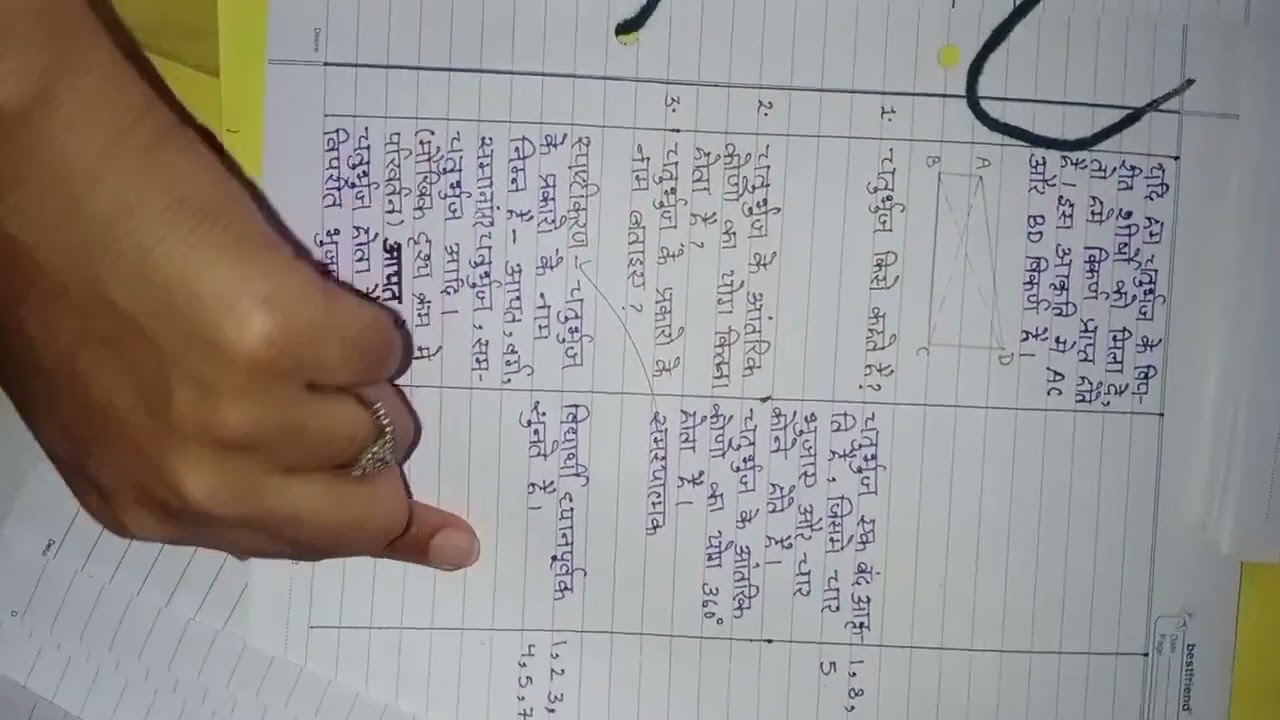 bestfriend
Date
Page
यदि हम चतुर्भुज के विप-
रीत शीर्षो को मिलाते है,
तो हमे विकर्ण प्राप्त होते
है। इस आकृति मे AC
और BD विकर्ण है।
A
D
B
C
1. चतुर्भुज किसे कहते है?
चतुर्भुज एक बंद आकृ-
ति है, जिसमे चार
भुजाए और चार
कोन होते है।
1, 3,
5
2. चतुर्भुज के आंतरिक
कोणो का योग कितना
होता है?
चतुर्भुज के आंतरिक
कोणो का योग 360°
होता है।
3. चतुर्भुज के प्रकारो के
नाम बताइए ?
समस्यात्मक
स्पष्टीकरण - चतुर्भुज
के प्रकारो के नाम
निम्न है - आयत, वर्ग,
समानांतर चतुर्भुज, सम-
चतुर्भुज आदि।
(मौखिक दृश्य क्रम मे
परिवर्तन) आयत
चतुर्भुज होता
विपरीत
विद्यार्थी ध्यानपूर्वक
सुनते है।
1, 2 3,
4, 5, 7